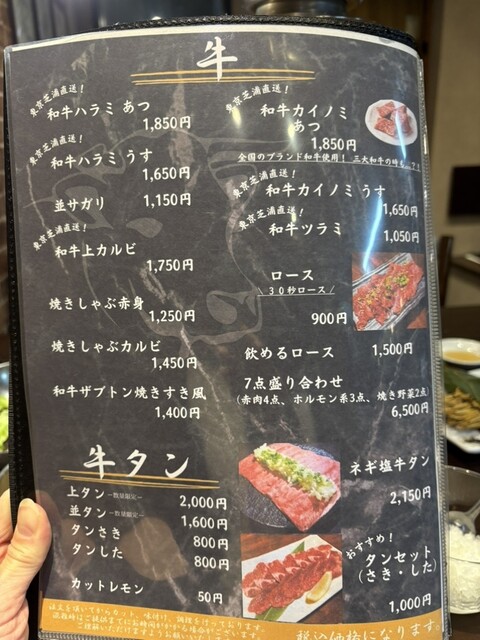 牛
東京芝浦直送！
和牛ハラミ あつ
1,850円
東京芝浦直送！
和牛ハラミ うす
1,650円
並サガリ 1,150円
東京芝浦直送！
和牛上カルビ
1,750円
焼きしゃぶ赤身
1,250円
焼きしゃぶカルビ
1,450円
和牛ザブトン焼きすき風
1,400円
東京芝浦直送！
和牛カイノミ
あつ
1,850円
全国のブランド和牛使用！ 三大和牛の時も…？！
東京芝浦直送！
和牛カイノミ うす
1,650円
東京芝浦直送！
和牛ツラミ 1,050円
ロース
\ 30秒ロース /
900円
飲めるロース 1,500円
7点盛り合わせ
(赤肉4点、ホルモン系3点、焼き野菜2点)
6,500円
牛タン
上タン －数量限定－ 2,000円
並タン －数量限定－ 1,600円
タンさき 800円
タンした 800円
カットレモン 50円
ネギ塩牛タン
2,150円
おすすめ！
タンセット
(さき・した)
1,000円
注文を頂いてからカット、味付け、調理を行っております。
税込価格になります。